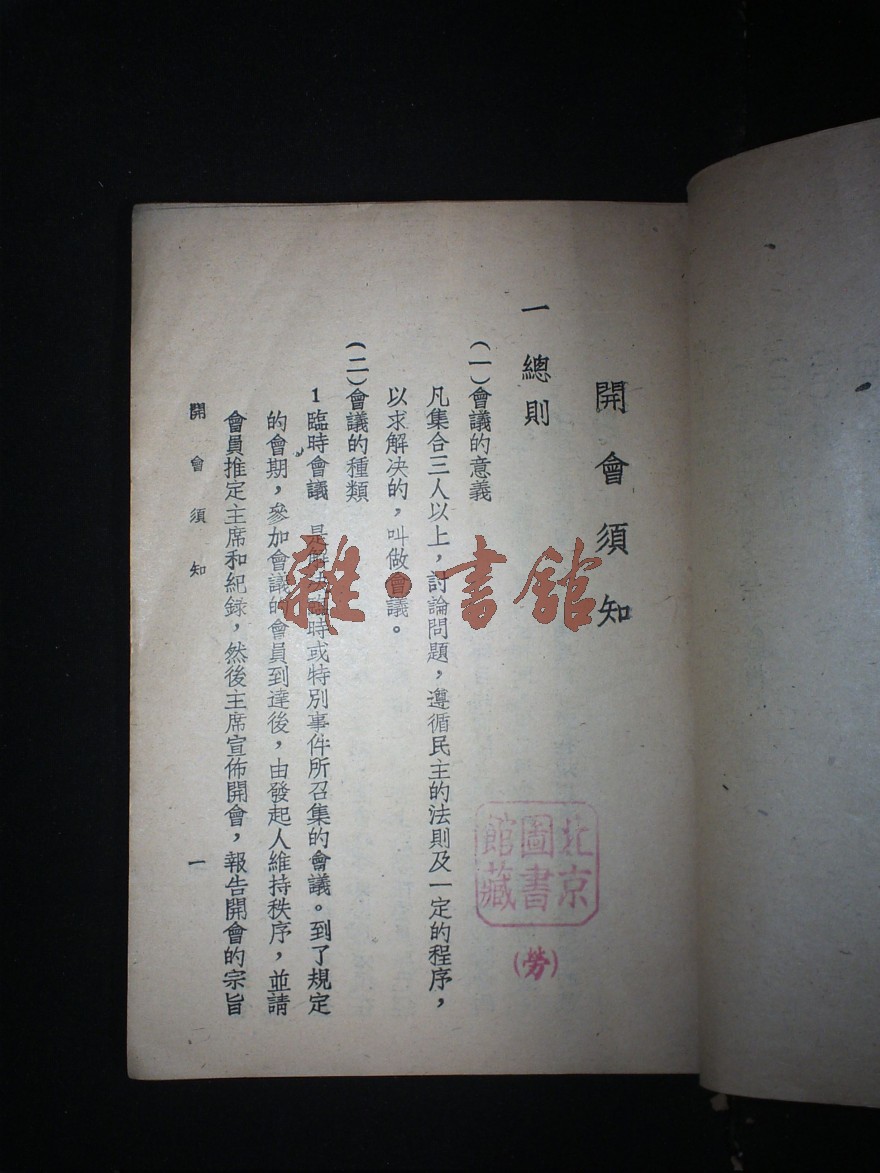 開會須知
一 總則
（一）會議的意義
凡集合三人以上，討論問題，遵循民主的法則及一定的程序，
以求解决的，叫做會議。
（二）會議的種類
1 臨時會議　是解決臨時或特別事件所召集的會議。到了規定
的會期，參加會議的會員到達後，由發起人維持秩序，並請
會員推定主席和紀錄，然後主席宣佈開會，報告開會的宗旨
開會須知
一
雜·書館
北京
圖書
館藏
（勞）